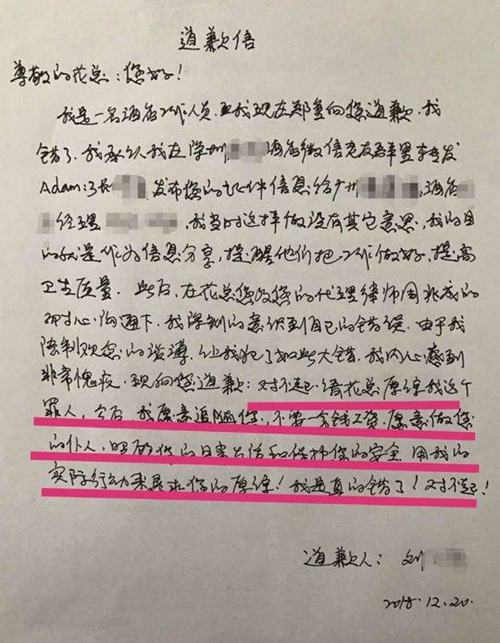 道歉信
尊敬的花总：您好！
我是一名酒店工作人员，我现在郑重向您道歉，我
错了，我承认我在深圳 酒店微信 群里
Adam: 发布您的证件信息给广州 酒店
经理 我当时这样做没有其它意思，我的目
的仅是作为信息分享，提醒他们把工作做好，提高
卫生质量。此后，在花总您及您的代理律师周兆成的
耐心沟通下，我深刻的意识到自己的错误。由于我
法制观念的淡薄，让我犯了如此大错，我内心感到
非常愧疚，现向您道歉：对不起，请花总原谅我这个
罪人，今后，我愿意追随您，不要一分钱工资，愿意做您
的仆人，照顾您的日常生活和保护您的安全，用我的
实际行动来恳求您的原谅！我是真的错了！对不起！
道歉人：刘
2018.12.20.